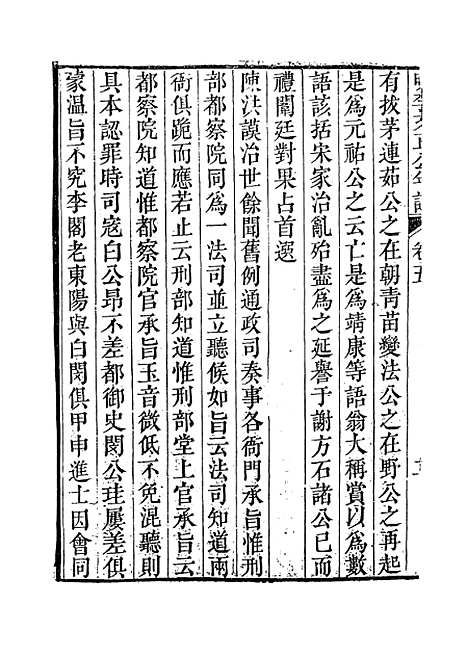 有拔茅連茹公之在朝靑苗變法公之在野公之再起
是爲元祐公之云亡是爲靖康等語翁大稱賞以爲數
語該括宋家治亂殆盡爲之延譽于謝方石諸公已而
禮闈廷對果占首選
陳洪謨治世餘聞舊例通政司奏事各衙門承旨惟刑
部都察院同爲一法司並立聽候如旨云法司知道兩
衙俱跪而應若止云刑部知道惟刑部堂上官承旨云
都察院知道惟都察院官承旨玉音微低不免混聽則
具本認罪時司寇白公昂不差都御史閔公珪屢差俱
家溫旨不究李閣老東陽與白閔俱甲申進士因會同